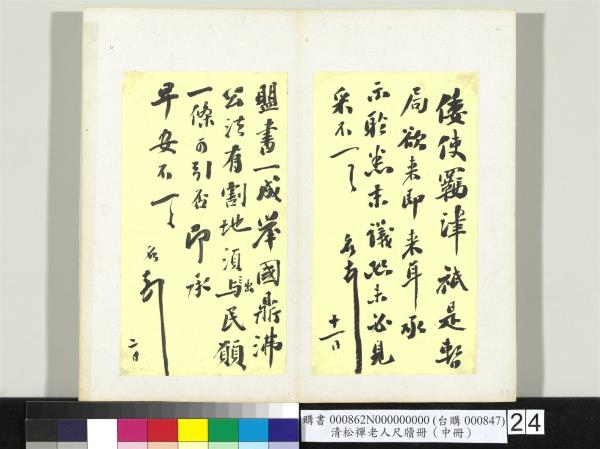 倭使羈津祇是暫
局欲來即來耳承
示聆悉末議必未必見
采不一一
名心叩
十一日
盟書一成舉國鼎沸
公法有割地須出與民願
一條可引否即承
早安不一一
名心叩
二日
購書 000862N000000000 (台購 000847)
清松禪老人尺牘冊(中冊)
24